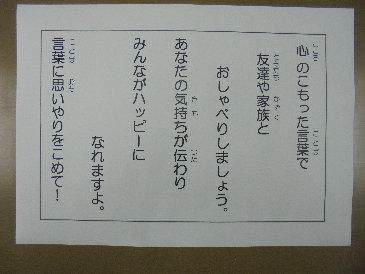 心のこもった言葉で
友達や家族と
おしゃべりしましょう。
あなたの気持ちが伝わり
みんながハッピーに
なれますよ。
言葉に思いやりをこめて！